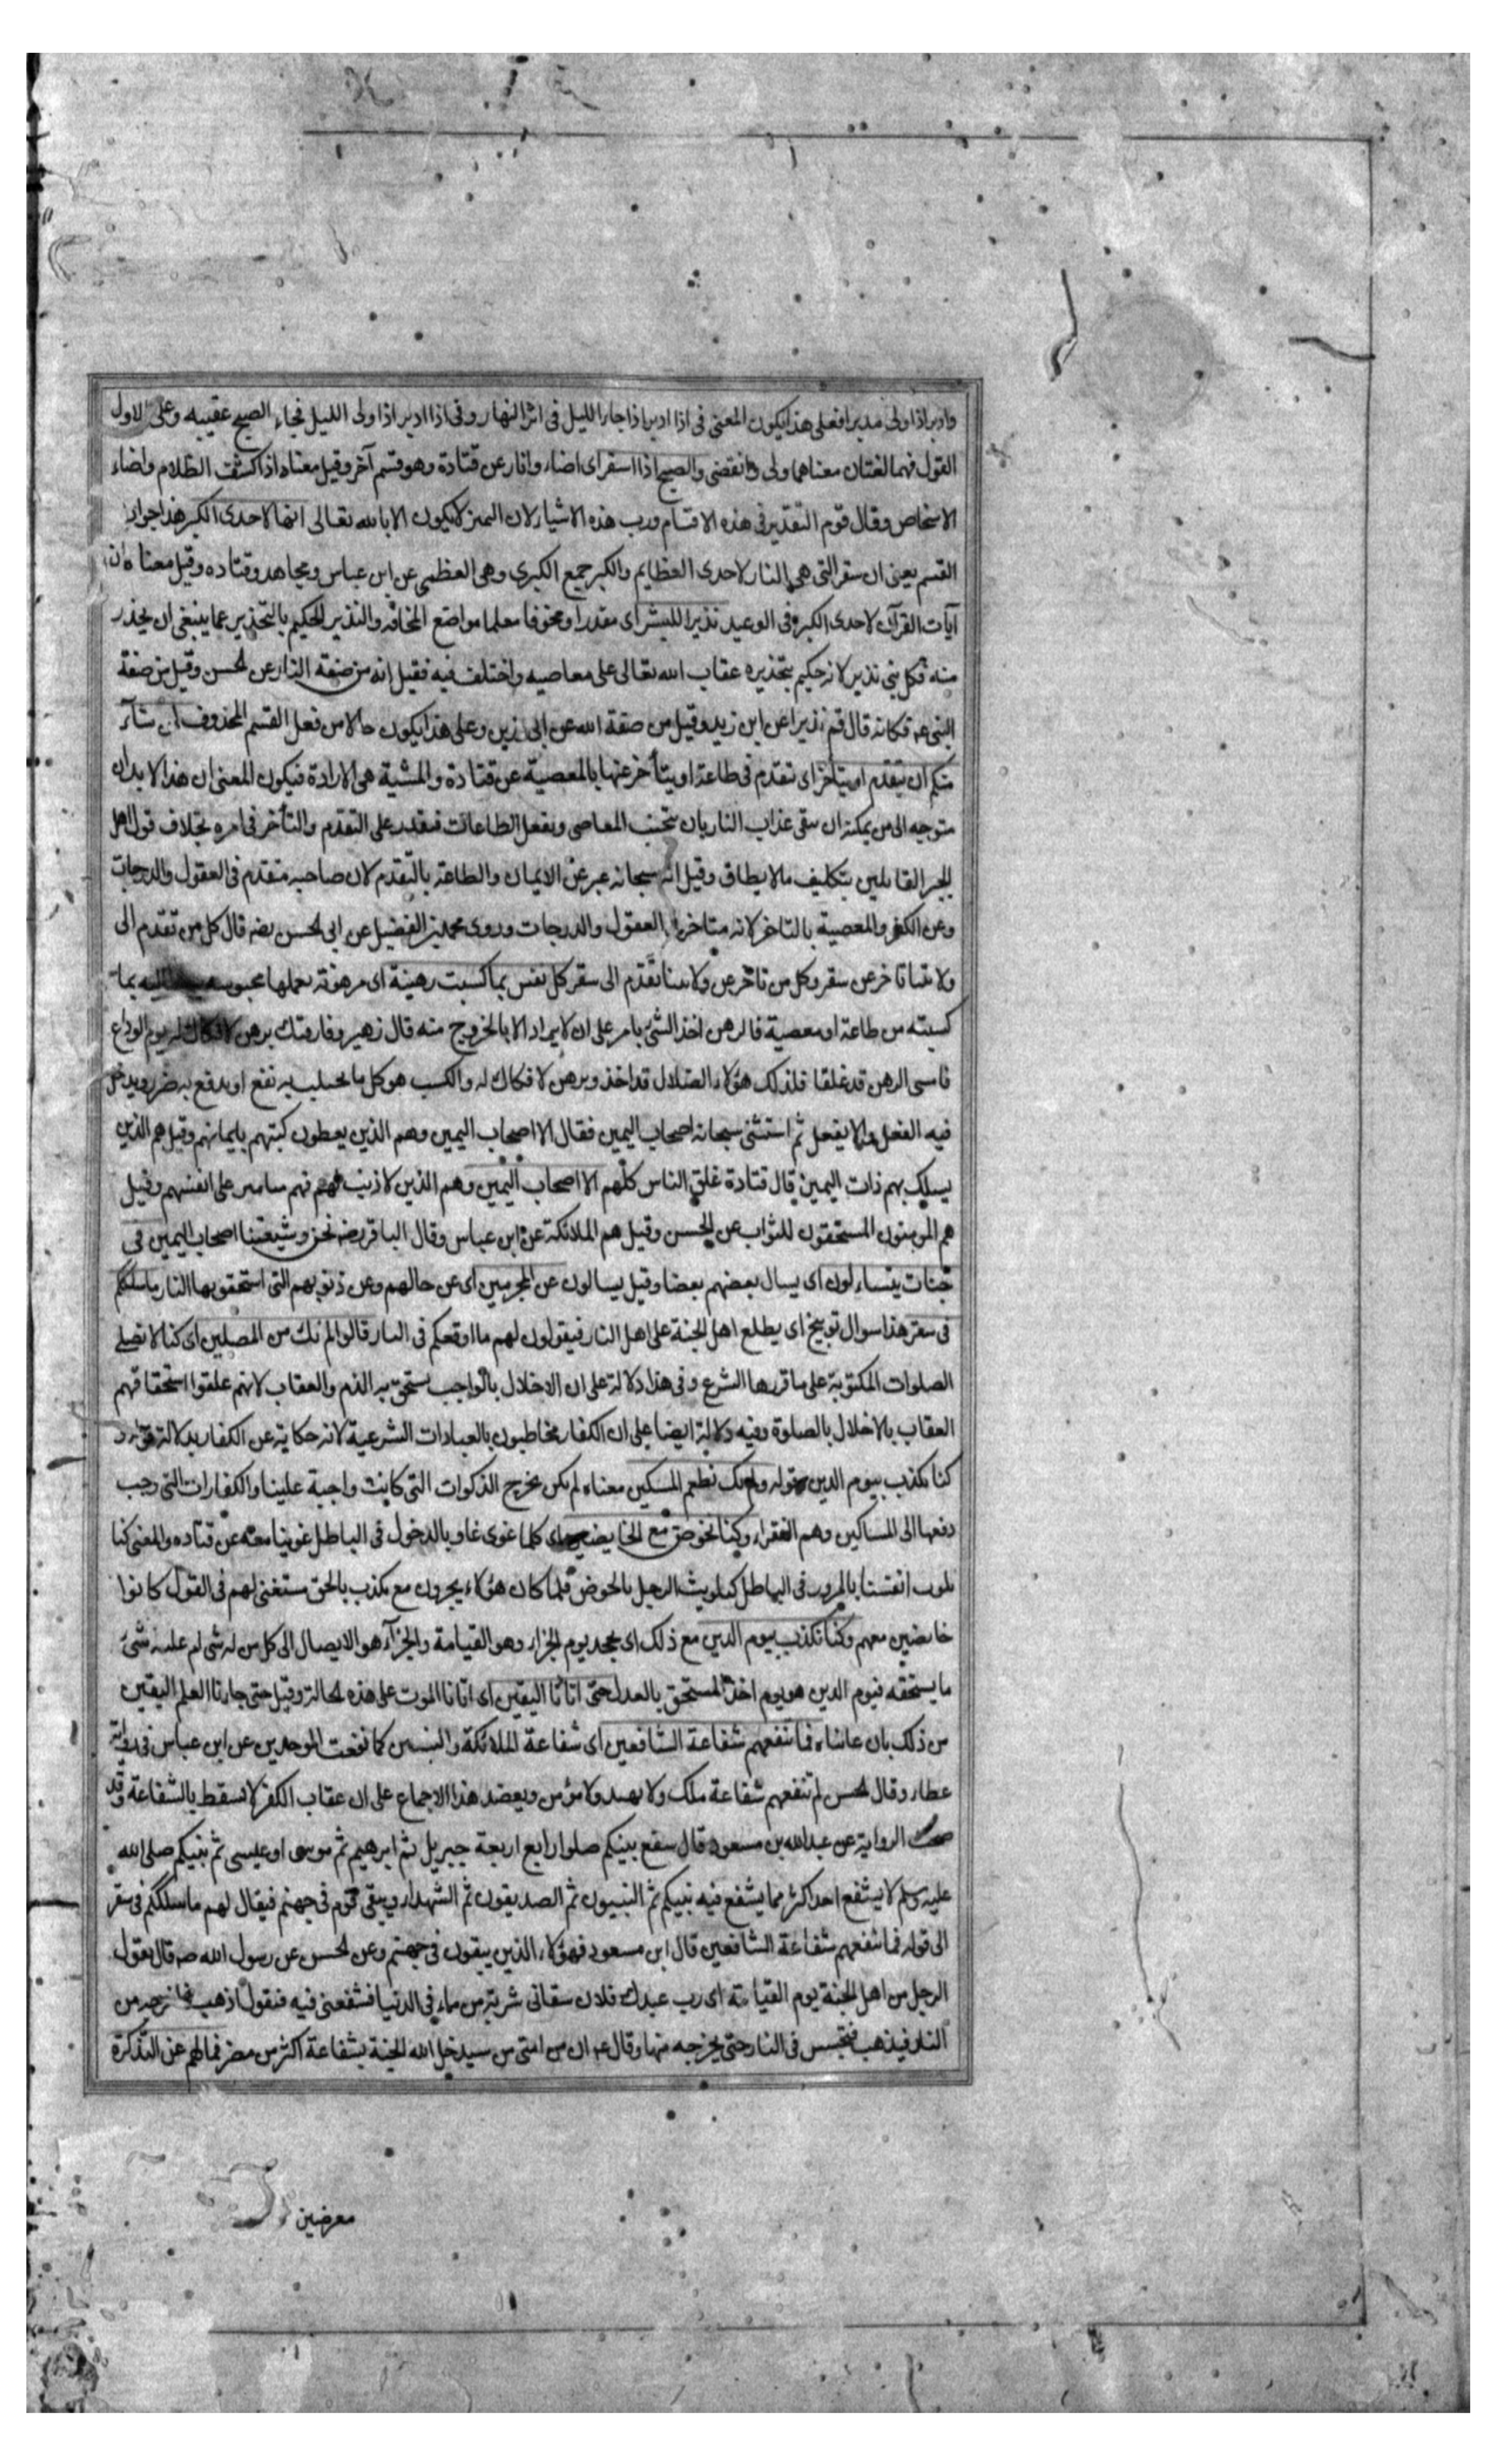 وادبر اذا ولى مدبرا فعلى هذا يكون المعنى فى اذا ادبر اذا جاء الليل فى اثر النهار وفى اذا ادبر اذا ولى الليل فجاء الصبح عقيبه وعلى الاول
القول فهما لغتان معناهما ولى وانقضى والصبح اذا اسفر اى اضاء وانار عن قتادة وهو قسم آخر وقيل معناه اذا كشف الظلام واضاء
الاشخاص وقال قوم التقدير فى هذه الاقسام ورب هذه الاشياء لان اليمين لا يكون الا بالله تعالى انها لاحدى الكبر هذا جواب
القسم يعنى ان سقر التى هى النار لاحدى العظايم والكبر جمع الكبرى وهى العظمى عن ابن عباس ومجاهد وقتاده وقيل معناه ان
آيات القرآن لاحدى الكبر فى الوعيد نذيرا للبشر اى منذرا ومخوفا معلما مواضع المخافة والنذير الحكيم بالتحذير عما ينبغى ان يحذر
منه فكل نبى نذير لانه حكيم بتحذيره عقاب الله تعالى على معاصيه واختلف فيه فقيل انه من صفة النار عن الحسن وقيل من صفة
النبى عم فكانه قال قم نذيرا عن ابن زيد وقيل من صفة الله عن ابى رزين وعلى هذا يكون حالا من فعل القسم المحذوف لمن شآء
منكم ان يتقدم او يتأخر اى يتقدم فى طاعة او يتأخر عنها بالمعصية عن قتادة والمشية هى الارادة فيكون المعنى ان هذا الانذار
متوجه الى من يمكنه ان يتقى عذاب النار بان يجتنب المعاصى ويفعل الطاعات فيقدر على التقدم والتأخر فى امره بخلاف قول اهل
الجبر القايلين بتكليف ما لا يطاق وقيل انه سبحانه عبر عن الايمان والطاعة بالتقدم لان صاحبه متقدم فى العقول والدرجات
وعن الكفر والمعصية بالتاخر لانه متاخر فى العقول والدرجات وروى محمد بن الفضيل عن ابى الحسن رضه قال كل من تقدم الى
ولايتنا تاخر عن سقر وكل من تاخر عن ولايتنا تقدم الى سقر كل نفس بما كسبت رهينة اى مرهونة بعملها محبوسة بما
كسبته من طاعة او معصية فالرهن اخذ الشئ بامر على ان لا يراد الا بالخروج منه قال زهير وفارقتك برهن لا فكاك له يوم الوداع
فامسى الرهن قد غلقا فلذلك هؤلاء الضلال قد اخذ وبرهن لا فكاك له والكسب هو كل ما يجتلب به نفع او يدفع به ضرر ويدخل
فيه الفعل والا يفعل ثم استثنى سبحانه اصحاب اليمين فقال الا اصحاب اليمين وهم الذين يعطون كتبهم بايمانهم وقيل هم الذين
يسلك بهم ذات اليمين قال قتادة غلق الناس كلهم الا اصحاب اليمين وهم الذين لا ذنب لهم فهم على انفسهم وقيل
هم المومنون المستحقون للثواب عن الحسن وقيل هم الملائكة عن ابن عباس وقال الباقر رضه نحن وشيعتنا اصحاب اليمين فى
جنات يتساءلون اى يسال بعضهم بعضا وقيل يسالون عن المجرمين اى عن حالهم وعن ذنوبهم التى استحقوا بها النار ما سلككم
فى سقر هذا سوال توبيخ اى يطلع اهل الجنة على اهل النار فيقولون لهم ما اوقعكم فى النار قالوا لم نك من المصلين اى كنا لا نصلى
الصلوات المكتوبة على ما قررها الشرع وفى هذا دلالة على ان الاخلال بالواجب يستحق به الذم والعقاب لانهم علقوا استحقاقهم
العقاب بالاخلال بالصلوة وفيه دلالة ايضا على ان الكفار مخاطبون بالعبادات الشرعية لانه حكاية عن الكفار بدلالة قوله و
كنا نكذب بيوم الدين وقوله ولم نك نطعم المسكين معناه لم نكن نخرج الزكوات التى كانت واجبة علينا والكفارات التى وجب
دفعها الى المساكين وهم الفقراء وكنا نخوض مع الخايضين اى كلما غوى غاو بالدخول فى الباطل غوينا معه عن قتاده والمعنى كنا
نلوث انفسنا بالمرور فى الباطل كتلويث الرجل بالخوض فلما كان هؤلاء يجرون مع مكذب بالحق مستغنى لهم فى القول كانوا
خايضين معهم وكنا نكذب بيوم الدين مع ذلك اى نجحد يوم الجزاء وهو القيامة والجزآء هو الايصال الى كل من له شى او عليه شئ
ما يستحقه فيوم الدين هو يوم اخذ المستحق بالعدل حتى اتانا اليقين اى اتانا الموت على هذه الحالة وقيل حتى جاءنا العلم اليقين
من ذلك بان عايناه فما تنفعهم شفاعة الشافعين اى شفاعة الملائكة والنبيين كما نفعت الموحدين عن ابن عباس فى رواية
عطاء وقال الحسن لم تنفعهم شفاعة ملك ولا شهيد ولا مؤمن ويعضد هذا الاجماع على ان عقاب الكفر لا يسقط بالشفاعة وقد
صحت الرواية عن عبد الله بن مسعود قال يشفع نبيكم صلوا رابع اربعة جبريل ثم ابرهيم ثم موسى او عيسى ثم نبيكم صلى الله
عليه وسلم لا يشفع احد اكثر مما يشفع فيه نبيكم ثم النبيون ثم الصديقون ثم الشهداء ويبقى قوم فى جهنم فيقال لهم ما سلككم فى سقر
الى قوله فما تنفعهم شفاعة الشافعين قال ابن مسعود فهؤلاء الذين يبقون فى جهنم وعن الحسن عن رسول الله صه قال يقول
الرجل من اهل الجنة يوم القيامة اى رب عبدك فلان سقانى شربة من ماء فى الدنيا فشفعنى فيه فيقول اذهب فاخرجه من
النار فيذهب فيتجسس فى النار حتى يخرجه منها وقال عم ان من امتى من سيدخل الله الجنة بشفاعة اكثر من مضر فما لهم عن التذكرة
معرضين